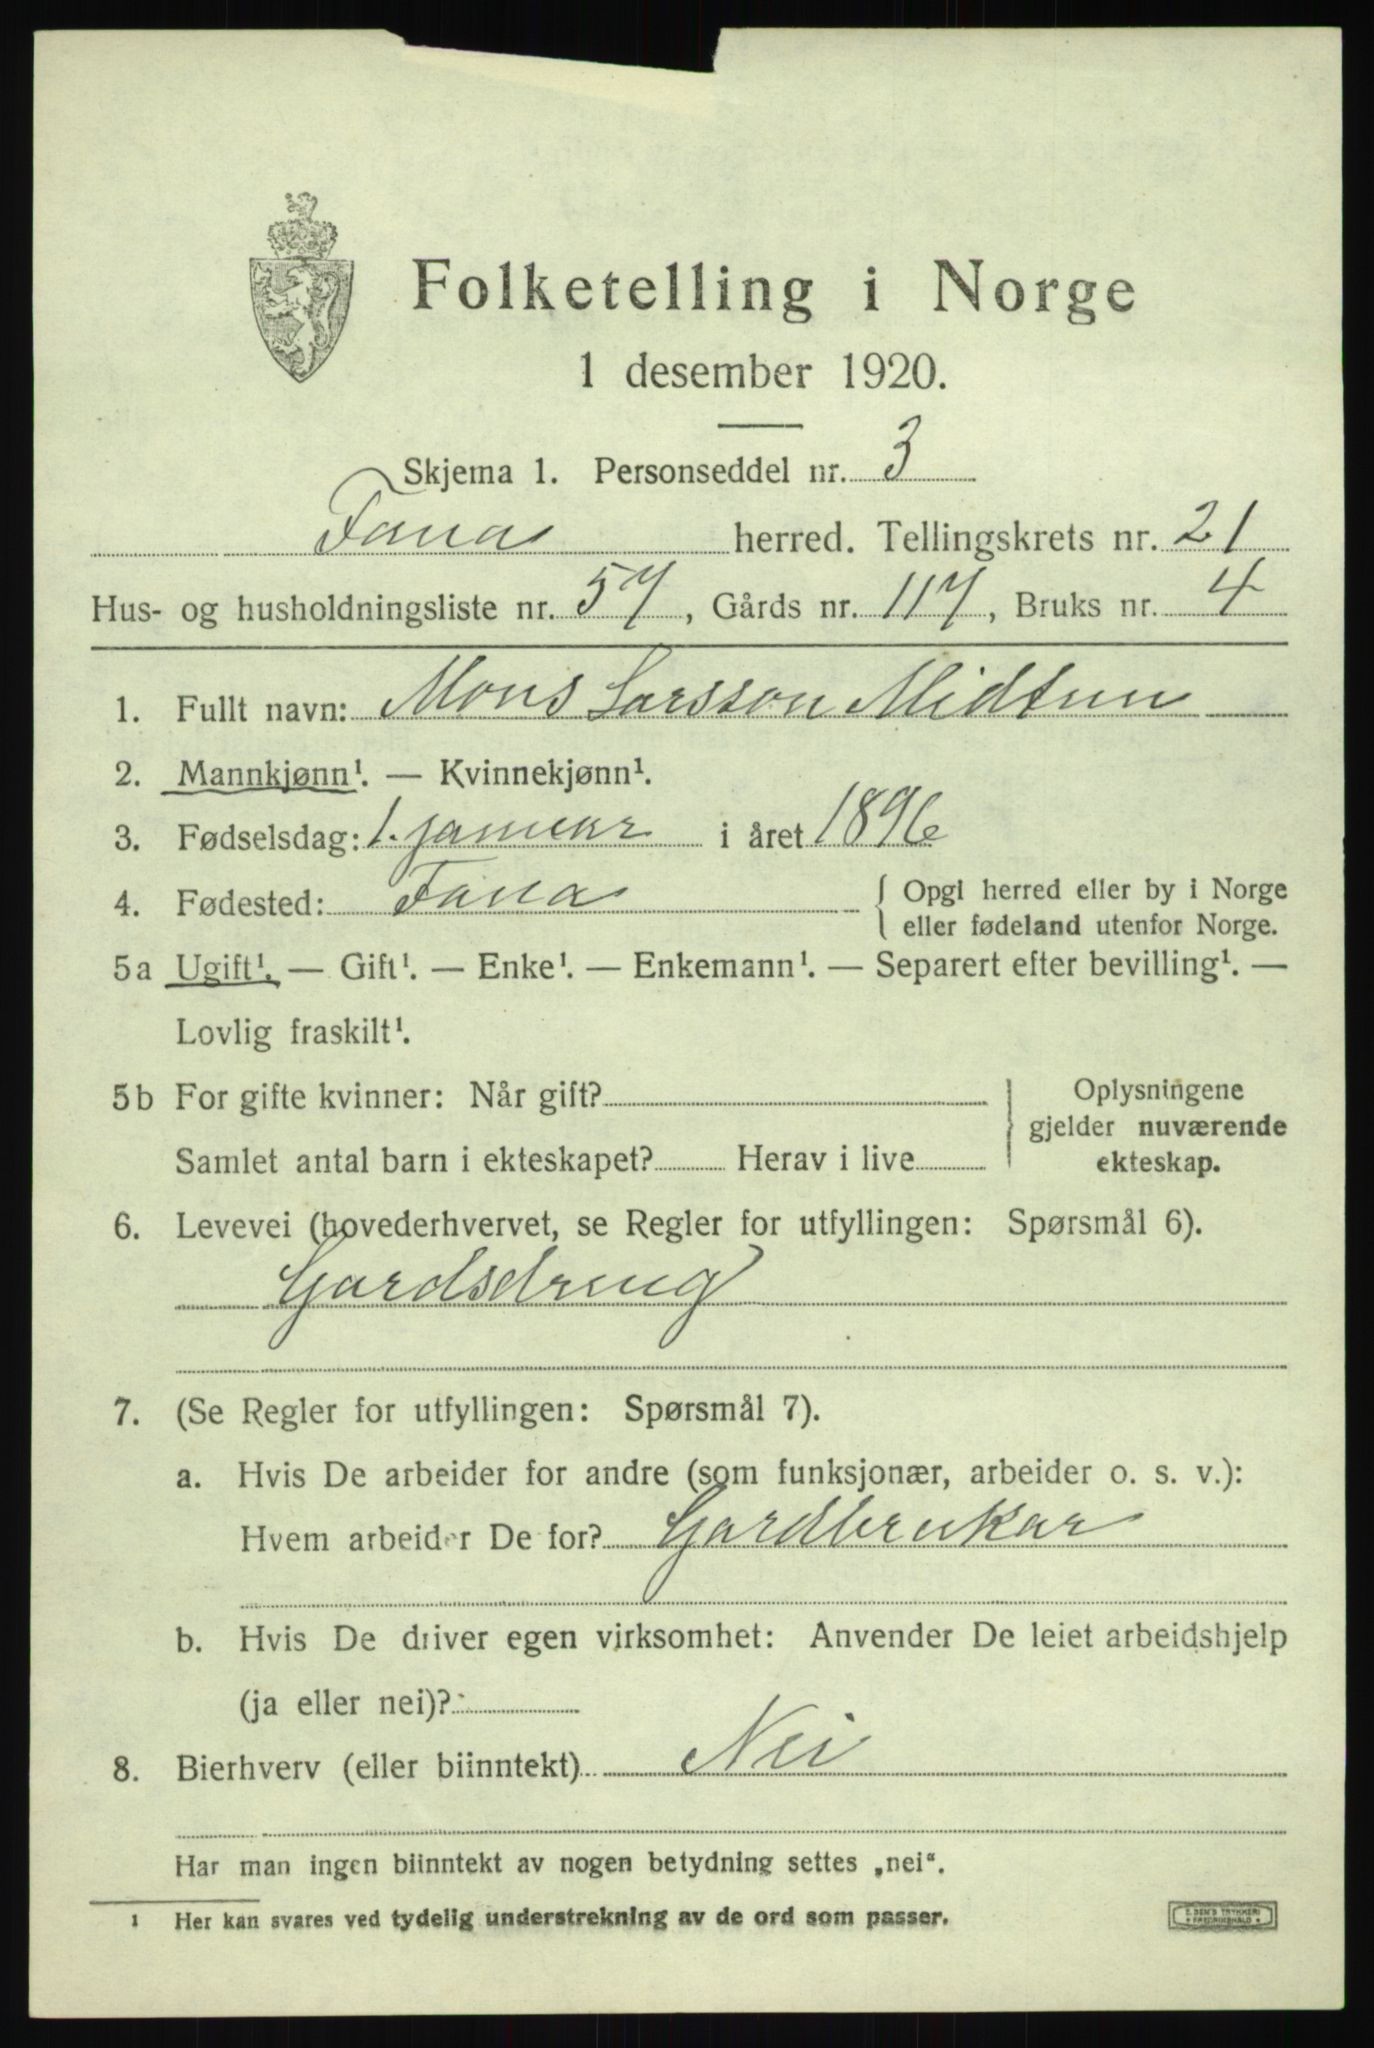 Folketelling i Norge
1 desember 1920.
Skjema 1. Personseddel nr. 3
Fana herred. Tellingskrets nr. 21
Hus- og husholdningsliste nr. 57, Gårds nr. 117, Bruks nr. 4
1. Fullt navn: Mons Larsson Midtun
2. Mannkjønn¹. — Kvinnekjønn¹.
3. Fødselsdag: 1. januar i året 1896
4. Fødested: Fana { Opgi herred eller by i Norge
eller fødeland utenfor Norge.
5a Ugift¹. — Gift¹. — Enke¹. — Enkemann¹. — Separert efter bevilling¹. —
Lovlig fraskilt¹.
5b For gifte kvinner: Når gift? Oplysningene
gjelder nuværende
Samlet antal barn i ekteskapet? Herav i live ekteskap.
6. Levevei (hovederhvervet, se Regler for utfyllingen: Spørsmål 6).
Gardsdreng
7. (Se Regler for utfyllingen: Spørsmål 7).
a. Hvis De arbeider for andre (som funksjonær, arbeider o. s. v.):
Hvem arbeider De for? Gardbrukar
b. Hvis De driver egen virksomhet: Anvender De leiet arbeidshjelp
(ja eller nei)?
8. Bierhverv (eller biinntekt) Nei
Har man ingen biinntekt av nogen betydning settes „nei“.
1 Her kan svares ved tydelig understrekning av de ord som passer.